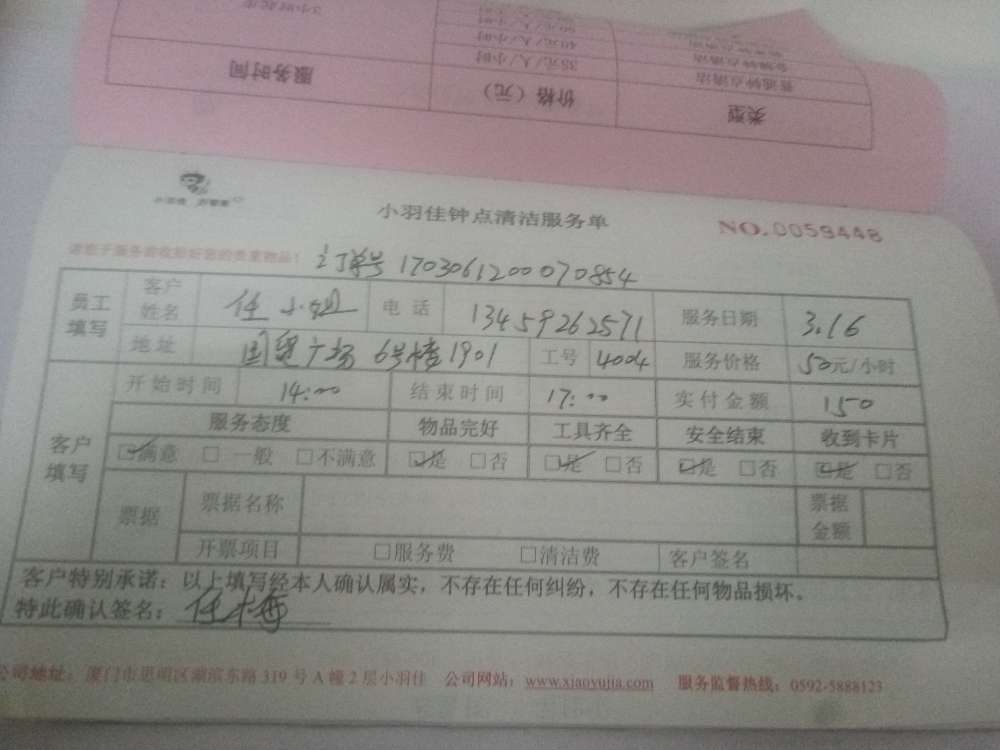 服务时间 价格（元） 类型
35元/人/小时 普通钟点清洁
40元/人/小时
3小时起步
小羽佳钟点清洁服务单
NO.0059448
请您于服务前收拾好您的贵重物品！ 订单号 170306120070854
员工填写 客户姓名 任小姐 电话 13459262571 服务日期 3.16
地址 国贸广场 6号楼1901 工号 4004 服务价格 50元/小时
客户填写 开始时间 14:00 结束时间 17:00 实付金额 150
服务态度 物品完好 工具齐全 安全结束 收到卡片
☑满意 □ 一般 □不满意 ☑是 □否 ☑是 □否 ☑是 □否 ☑是 □否
票据 票据名称 票据金额
开票项目 □服务费 □清洁费 客户签名
客户特别承诺：以上填写经本人确认属实，不存在任何纠纷，不存在任何物品损坏。
特此确认签名：任梅
公司地址：厦门市思明区湖滨东路319号A幢2层小羽佳 公司网站：www.xiaoyujia.com 服务监督热线：0592-5888123